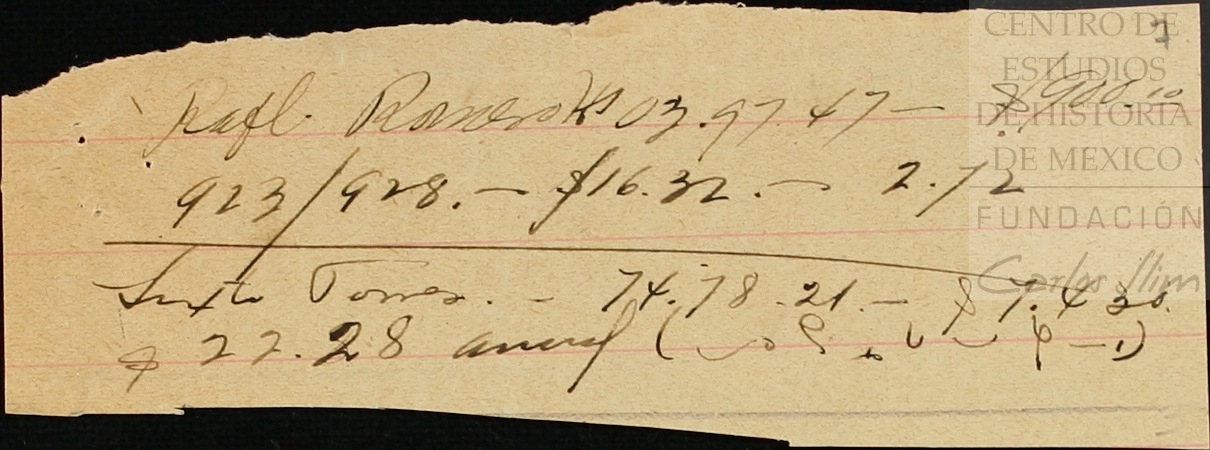 CENTRO DE
ESTUDIOS
DE HISTORIA
DE MEXICO
FUNDACIÓN
Carlos Slim
7
Rafl. Romero 03.97.47 — $ 900.00
923/928. — $16.32. — 2.72
Sixto Torres. — 74.78.21 — $ 7.430.
$ 22.28 anual